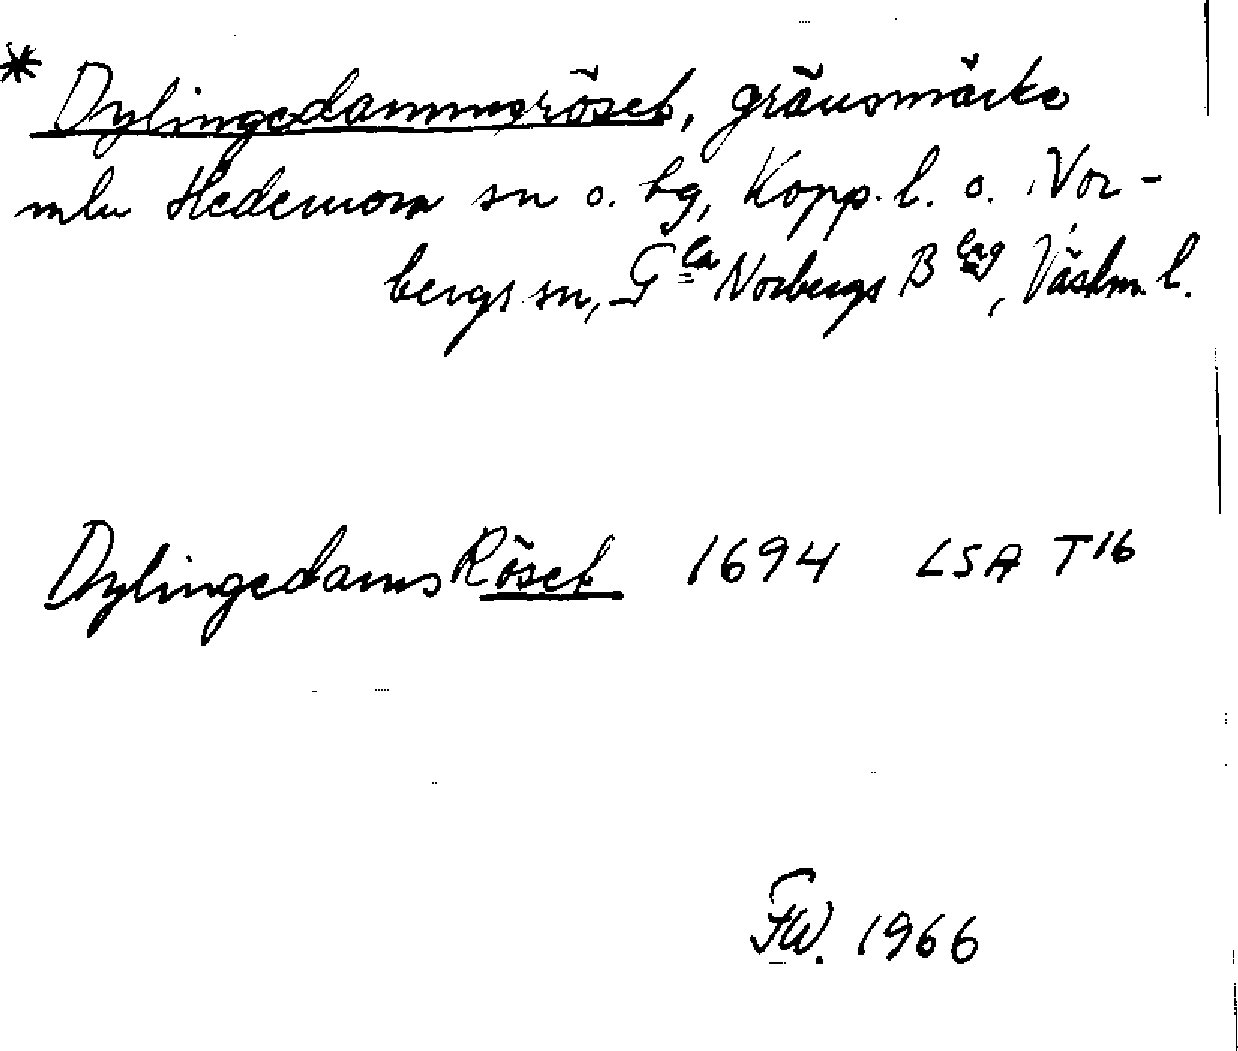 * Dylingedammsröset, gränsmärke
mln Hedemora sn o. hg, Kopp. l. o. Nor-
bergs sn, Gla Norbergs Blag, Västm. l.
DylingedamsRöset 1694 LSA T16
FW. 1966